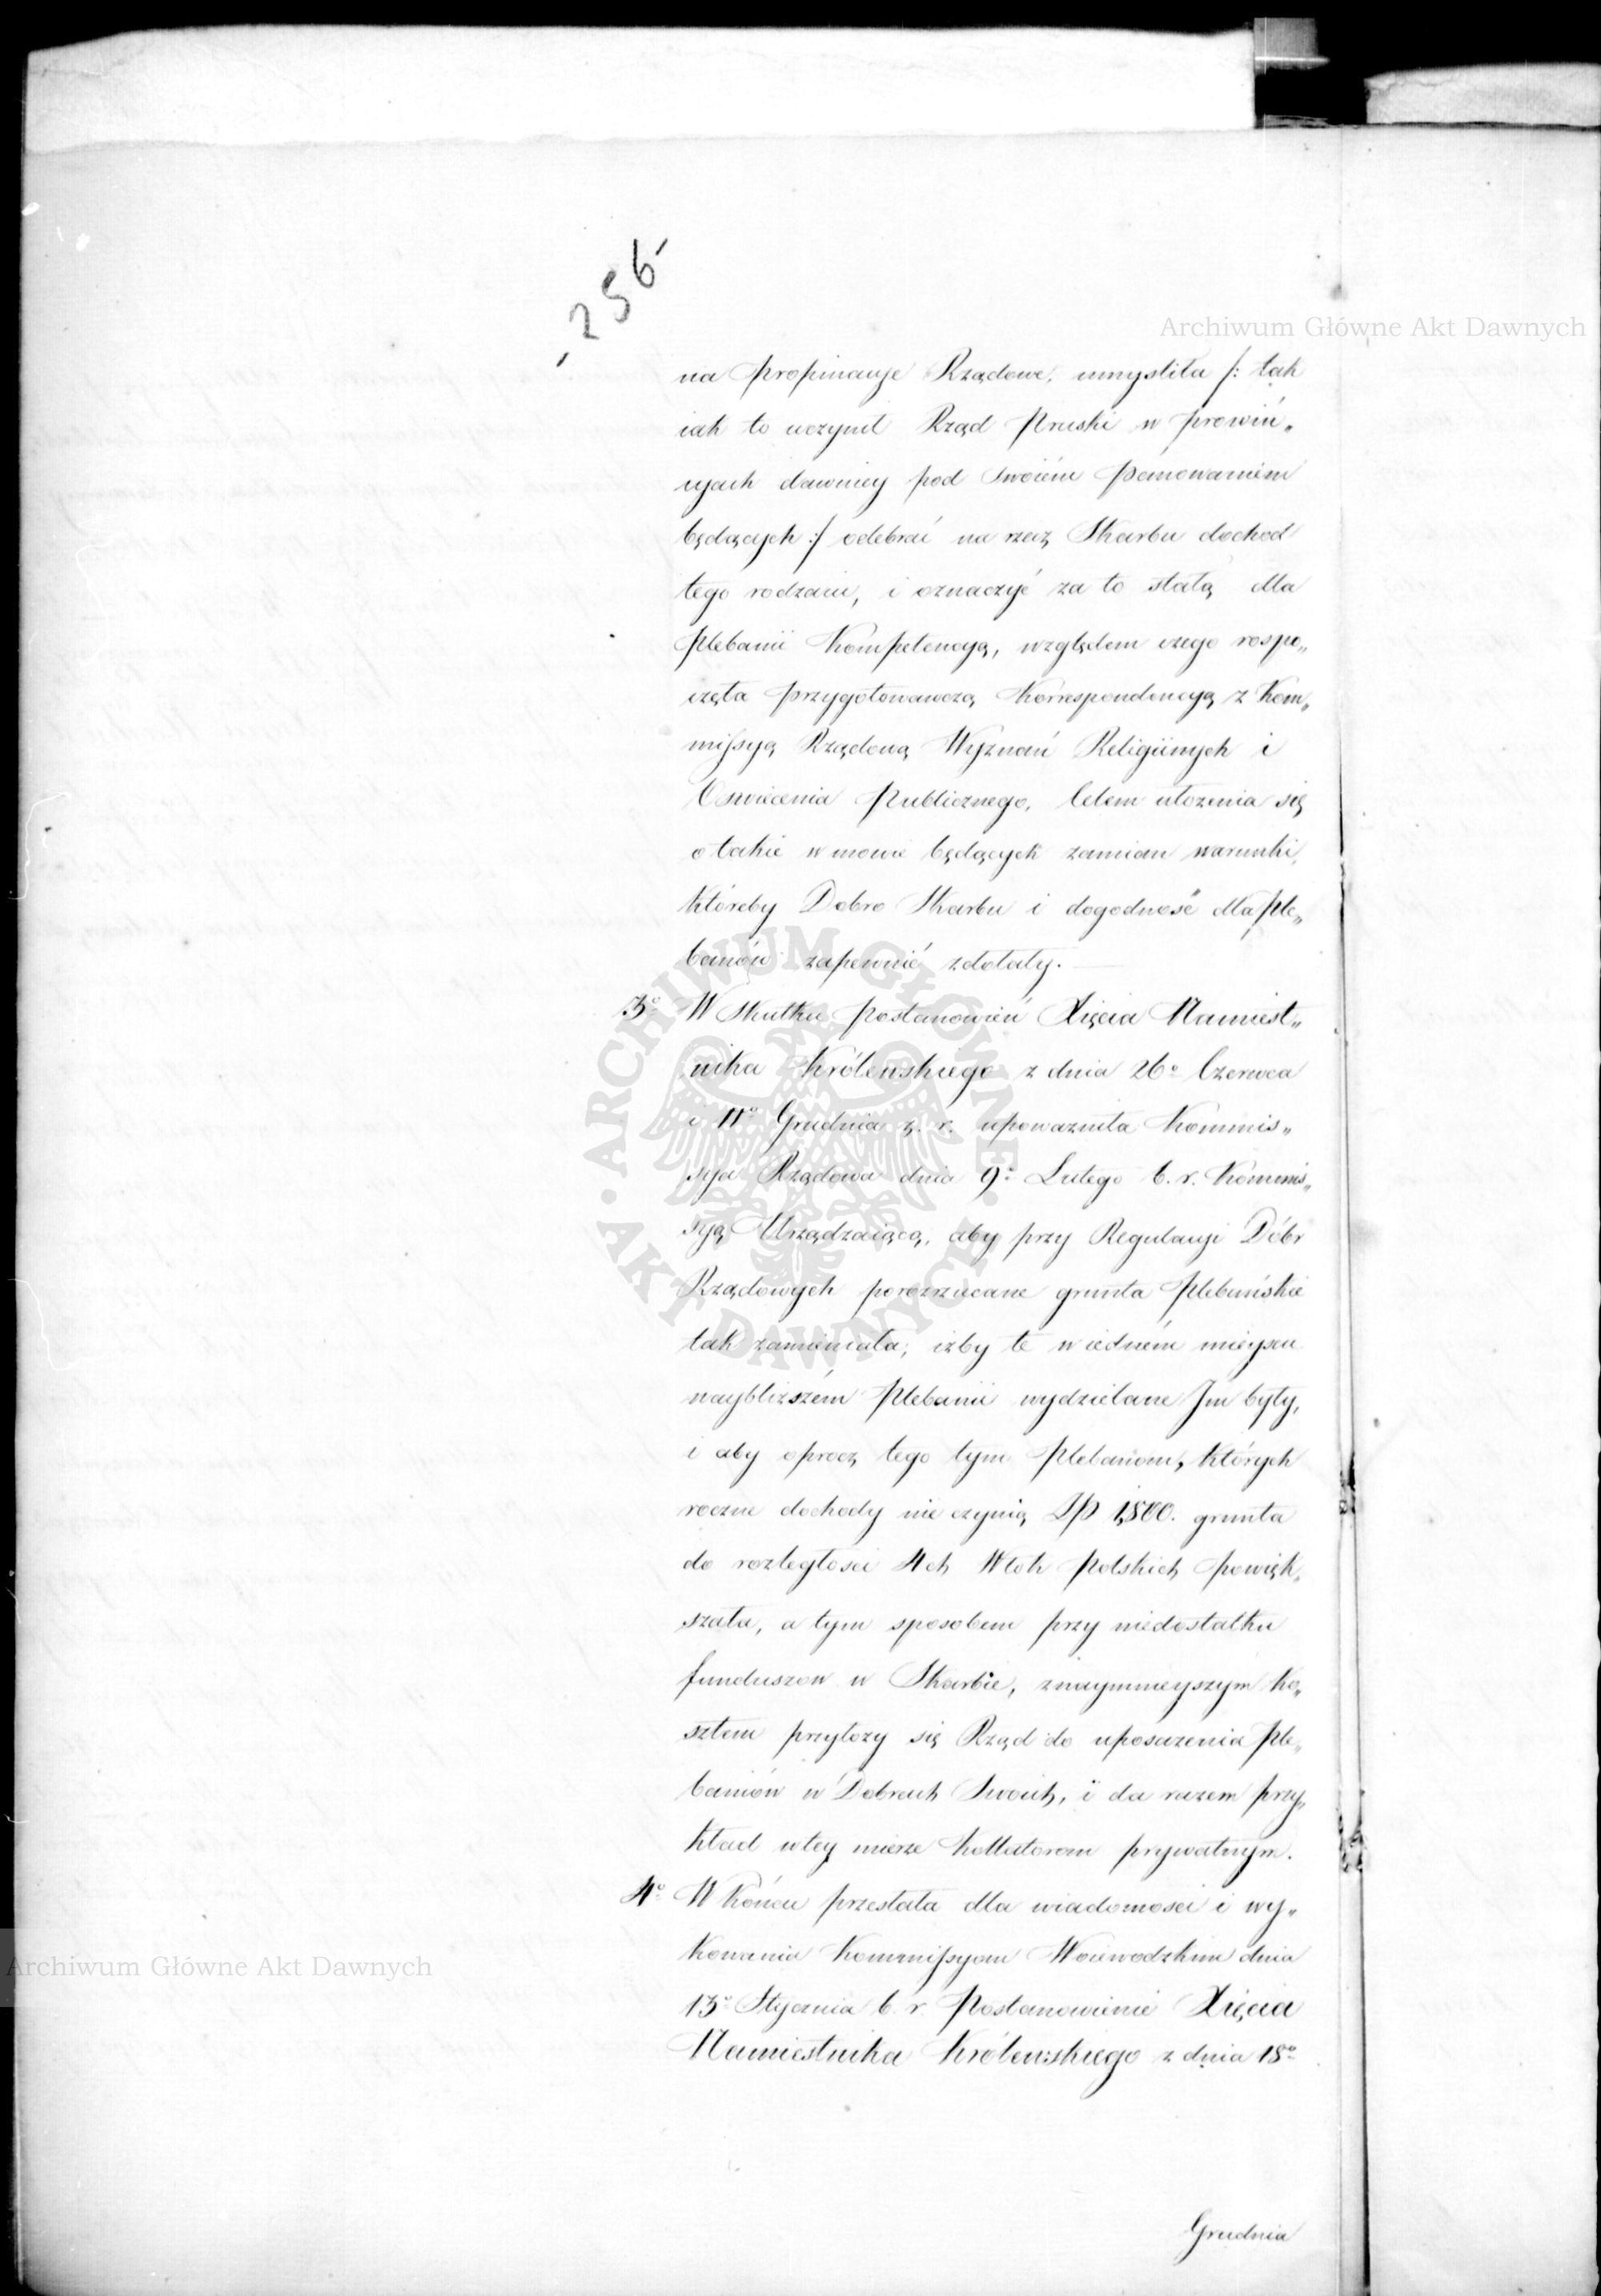 - 256 -
Archiwum Główne Akt Dawnych
na propinacye Rządowe, umyśliła /: tak
iak to uczynił Rząd Pruski w prowin„
cyach dawniey pod swoiém panowaniem
będących :/ odebrać na rzecz Skarbu dochod
tego rodzaiu, i oznaczyć za to stałą dla
Plebanii Kompetencyą, względem czego rospo„
częła przygotowawczą Korrespondencyą z Kom„
missyą Rządową Wyznań Religiinych i
Oswiecenia Publicznego, Celem ułożenia się
o takie w mowie będących zamian warunki,
któreby Dobro Skarbu i dogodność dla Ple„
banów zapewnić zdołały.
3o W Skutku postanowień Xięcia Namiest„
nika Królewskiego z dnia 26o Czerwca
i 11o Grudnia z. r. upoważniła Kommis„
sya Rządowa dnia 9o Lutego b. r. Kommis„
syą Urządzaiącą, aby przy Regulacyi Dóbr
Rządowych porozrzucane grunta Plebańskie
tak zamieniała, iżby te w iedném mieyscu
naybliższém Plebanii wydzielane Im były,
i aby oprocz tego tym Plebaniom, których
roczne dochody nie czynią Zł 1,800. grunta
do rozległości 4ch Włok Polskich powięk„
szała, a tym sposobem przy niedostatku
funduszow w Skarbie, znaymnieyszym ko„
sztem przyłoży się Rząd do uposażenia Ple„
baniów w Dobrach Swoich, i da razem przy„
kład wtey mierze Kollatorom prywatnym.
4o W Końcu przesłała dla wiadomości i wy„
konania Kommissyom Woiewodzkim dnia
13o Stycznia b. r. Postanowienie Xięcia
Namiestnika Królewskiego z dnia 18o
Grudnia
Archiwum Główne Akt Dawnych
ARCHIWUM GŁÓWNE AKT DAWNYCH